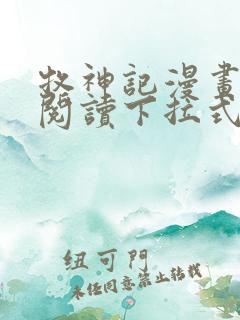 牧神記漫畫
閱讀下拉式
纽可門
未经同意禁止转载